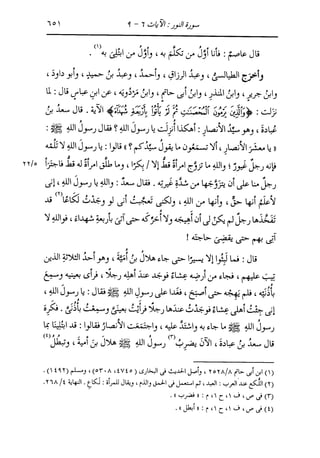 سورة النور : الآيات ٦ - ٩
٦٥١
قال عاصمٌ : فأنا أوَّلُ من تكلَّم به ، وأوَّلُ من ابتُلِىَ به (١) .
وأخرَج الطيالسىُّ ، وعبدُ الرزاقِ ، وأحمدُ ، وعبدُ بنُ حميدٍ ، وأبو داودَ ،
وابنُ جريرٍ ، وابنُ المنذرِ ، وابنُ أبى حاتمٍ ، وابنُ مَرْدُويَه ، عن ابنِ عباسٍ قال : لما
نزلت : ﴿وَالَّذِينَ يَرْمُونَ الْمُحْصَنَاتِ ثُمَّ لَمْ يَأْتُوا بِأَرْبَعَةِ شُهَدَاءَ﴾ الآية . قال سعدُ بنُ
عُبادةَ ، وهو سيِّدُ الأنصارِ : أهكذا أُنزِلَت يا رسولَ اللهِ ؟ فقال رسولُ اللهِ ﷺ :
« يا معشرَ الأنصارِ ، ألا تسمَعُون ما يقولُ سيِّدُكم ؟ » قالوا : يا رسولَ اللهِ لا تَلُمْه
فإنه رجلٌ غيورٌ ؛ واللهِ ما تزوَّج امرأةً قطُّ إلا / بِكرًا ، وما طلَّق امرأةً له قطُّ فاجترَأ
٢٢/٥
رجلٌ منا على أن يتزوَّجَها من شدَّةِ غَيرتِه . فقال سعدٌ : واللهِ يا رسولَ اللهِ ، إنى
لأعلمُ أنها حقٌّ ، وأنها من اللهِ ، ولكنى تعجبتُ أنى لو وجَدتُ لَكاعًا (٢) قد
تفَخَّذها رجلٌ لم يكنْ لى أن أَهيجَه ولا أُحرِّكَه حتى آتىَ بأربعةِ شهداءَ ، فواللهِ لا
آتى بهم حتى يقضىَ حاجتَه !
قال : فما لبِثوا إلا يسيرًا حتى جاء هلالُ بنُ أميةَ ، وهو أحدُ الثلاثةِ الذين
تِيب عليهم ، فجاء من أرضِه عشاءً فوجَد عندَ أهلِه رجلًا ، فرأَى بعينيه وسمِع
بأُذُنَيه ، فلم يَهِجْه حتى أصبَح ، فغدا على رسولِ اللهِ ﷺ فقال : يا رسولَ اللهِ ،
إنى جئتُ أهلى عشاءً فوجَدتُ عندَها رجلًا فرأيتُ بعينىَّ وسمِعتُ بأُذُنىَّ . فكرِه
رسولُ اللهِ ﷺ ما جاء به واشتدَّ عليه ، واجتمَعت الأنصارُ فقالوا : قد ابتُلينا بما
قال سعدُ بنُ عبادةَ ، الآن يضرِبُ (٣) رسولُ اللهِ ﷺ هلالَ بنَ أميةَ ، وتبطُلُ (٤)
(١) ابن أبى حاتم ٢٥٢٨/٨ ، وأصل الحديث فى البخارى (٤٧٤٥ ، ٥٣٠٨) ، ومسلم (١٤٩٢) .
(٢) اللُّكع عند العرب : العبد ، ثم استعمل فى الحمق والذم ، ويقال للمرأة : لكاع . النهاية ٢٦٨/٤ .
(٣) فى ص ، ف ١ ، ح ١ ، م : « فضرب » .
(٤) فى ص ، ف ١ ، ح ١ ، م : « أبطل » .